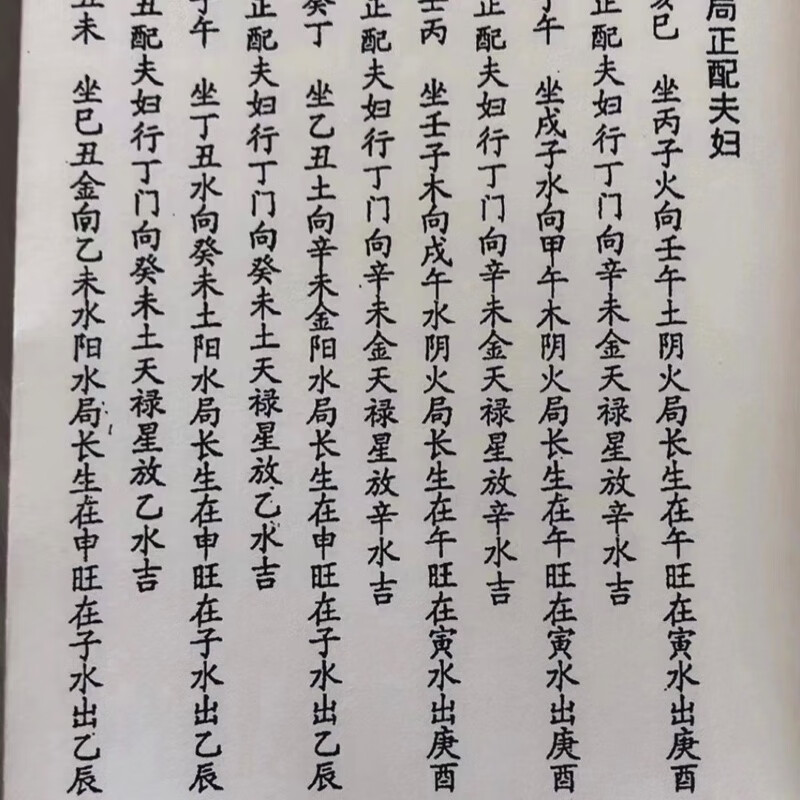 局正配夫妇
亥巳 坐丙子火向壬午土阴火局长生在午旺在寅水出庚酉
正配夫妇行丁门向辛未金天禄星放辛水吉
午 坐戌子水向甲午木阴火局长生在午旺在寅水出庚酉
正配夫妇行丁门向辛未金天禄星放辛水吉
壬丙 坐壬子木向戌午水阴火局长生在午旺在寅水出庚酉
正配夫妇行丁门向辛未金天禄星放辛水吉
癸丁 坐乙丑土向辛未金阳水局长生在申旺在子水出乙辰
正配夫妇行丁门向癸未土天禄星放乙水吉
午 坐丁丑水向癸未土阳水局长生在申旺在子水出乙辰
配夫妇行丁门向癸未土天禄星放乙水吉
丑未 坐巳丑金向乙未水阳水局长生在申旺在子水出乙辰